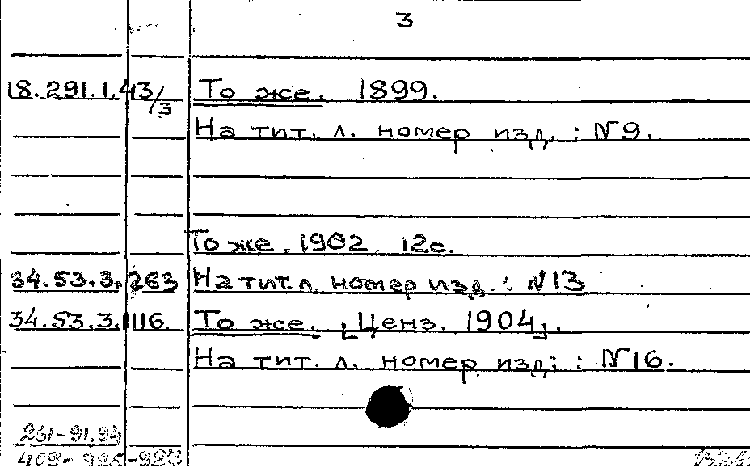 3
18.291.1.43/3 То же. 1899.
На тит. л. номер изд. : N9.
То же. 1902 12с.
34.53.3.263 На тит.л. номер изд. : N13
34.53.3.116. То же. [Ценз. 1904].
На тит. л. номер изд. : N16.